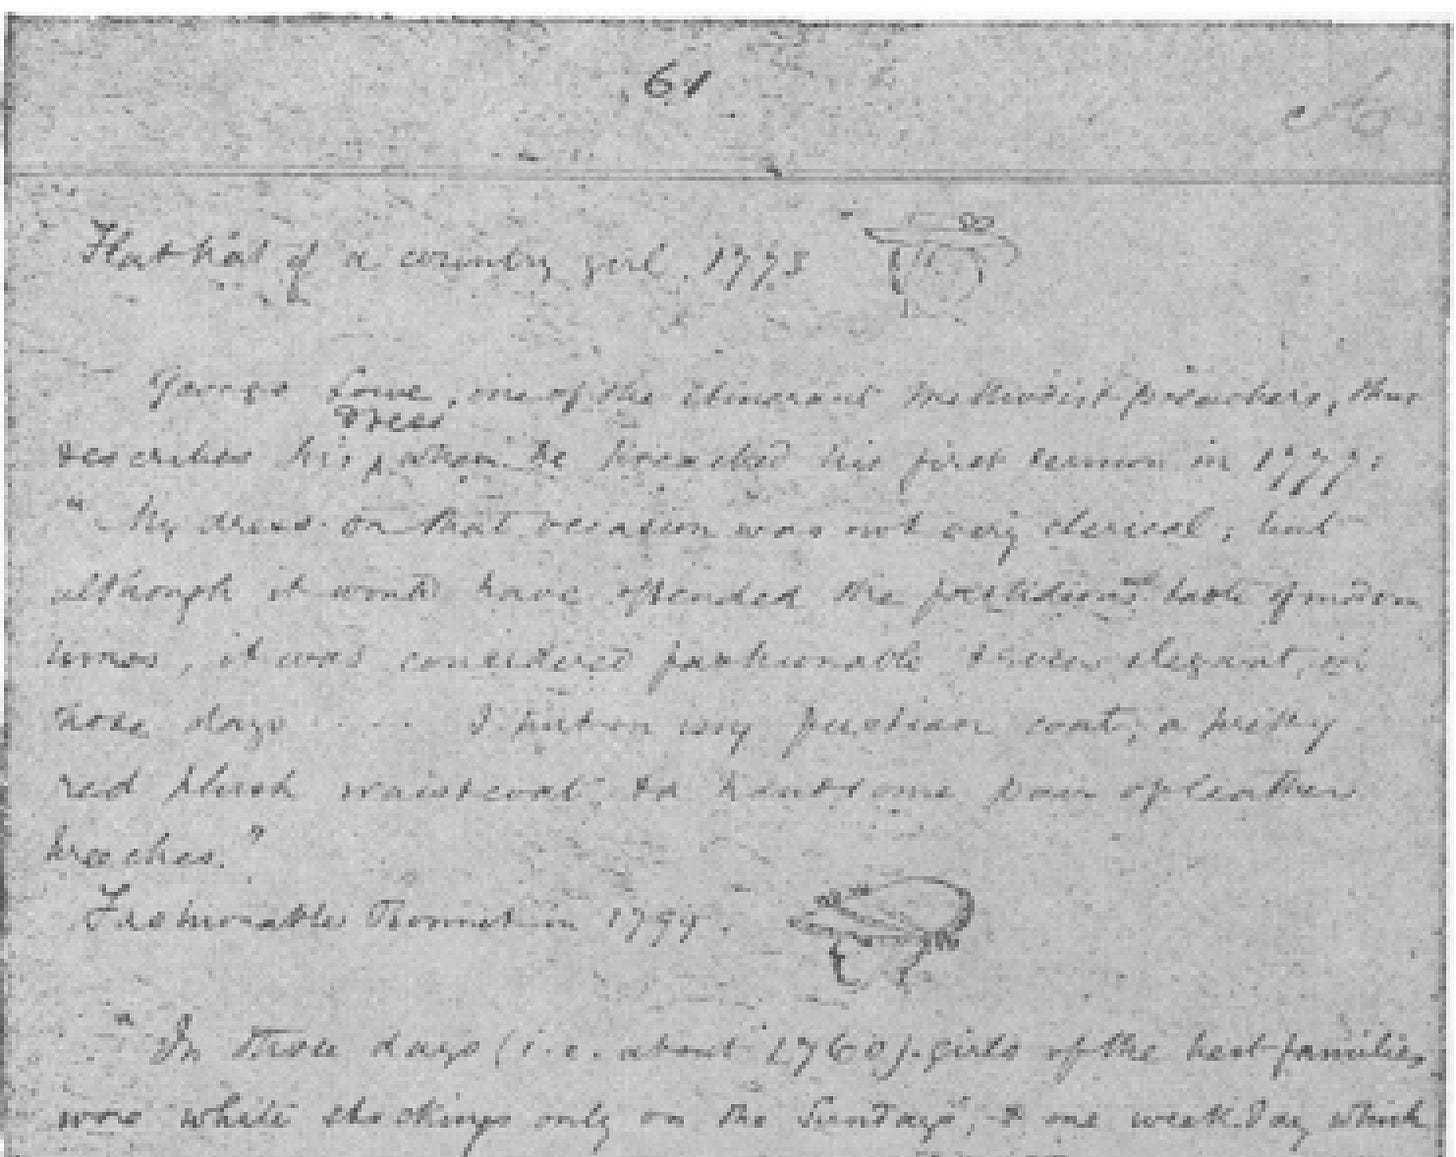 61
Flat hat of a country girl. 1773
George Lowe, one of the itinerant Methodist preachers, thus
dress
describes his when he preached his first sermon in 1777:
"My dress on that occasion was not very clerical; but
although it would have offended the fastidious taste of modern
times, it was considered fashionable & even elegant in
those days .... I put on my fustian coat, a pretty
red plush waistcoat, & a handsome pair of leather
breeches."
Fashionable Bonnet in 1794.
"In those days (i.e. about 1760) girls of the best families
wore white stockings only on the Sundays, & one week day which